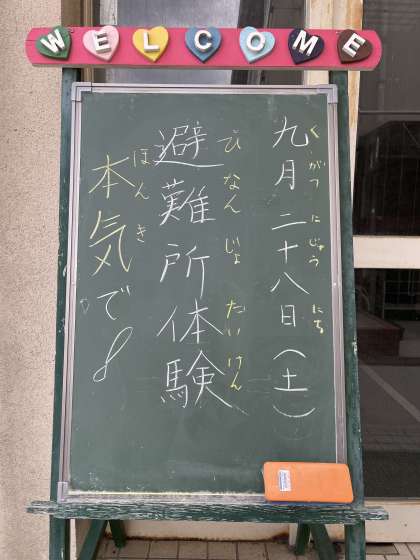 WELCOME
九月二十八日（土）
くがつにじゅうにち
避難所体験
ひなんじょたいけん
本気で!
ほんき